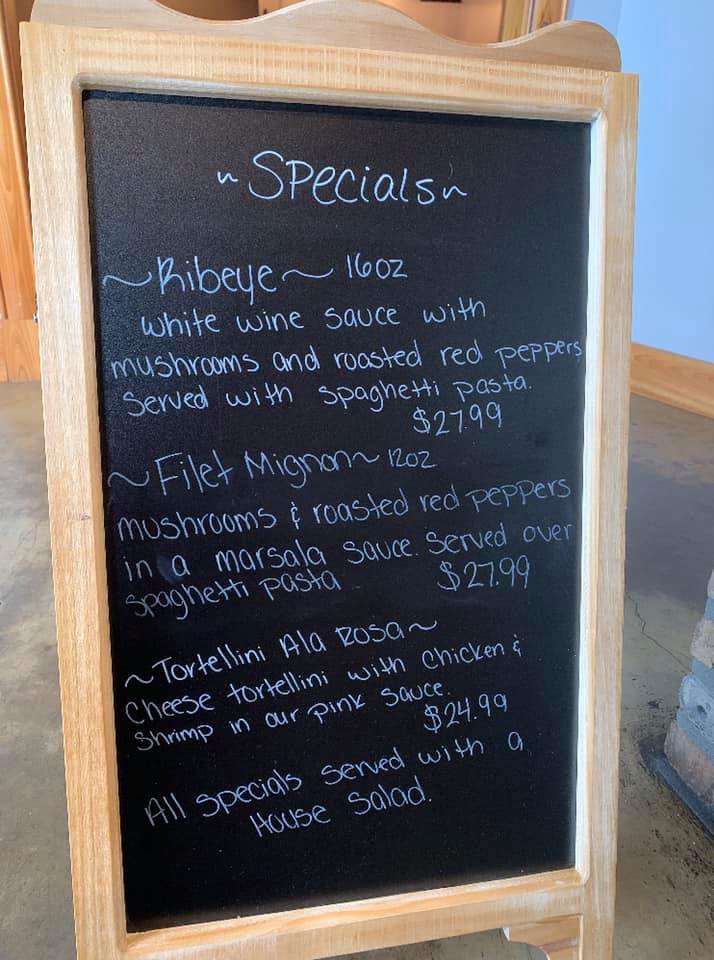 ~Specials~
~Ribeye~ 16oz
white wine sauce with
mushrooms and roasted red peppers
Served with spaghetti pasta.
$27.99
~Filet Mignon~ 12oz
mushrooms & roasted red peppers
in a marsala sauce. Served over
Spaghetti pasta $27.99
~Tortellini Ala Rosa~
Cheese tortellini with Chicken &
Shrimp in our pink sauce.
$24.99
All specials served with a
House Salad.